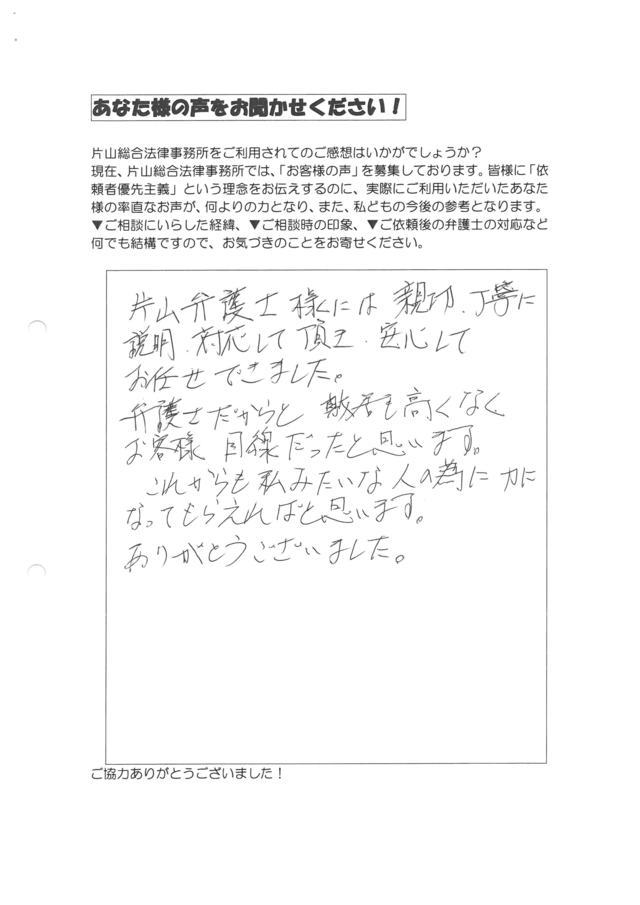 あなた様の声をお聞かせください！
片山総合法律事務所をご利用されてのご感想はいかがでしょうか？
現在、片山総合法律事務所では、「お客様の声」を募集しております。皆様に「依
頼者優先主義」という理念をお伝えするのに、実際にご利用いただいたあなた
様の率直なお声が、何よりの力となり、また、私どもの今後の参考となります。
▼ご相談にいらした経緯、▼ご相談時の印象、▼ご依頼後の弁護士の対応など
何でも結構ですので、お気づきのことをお寄せください。
片山弁護士様には 親切、丁寧に
説明、対応して頂き、安心して
お任せできました。
弁護士だからと 敷居も高くなく
お客様 目線だったと思います。
これからも私みたいな人の為に力に
なってもらえればと思います。
ありがとうございました。
ご協力ありがとうございました！